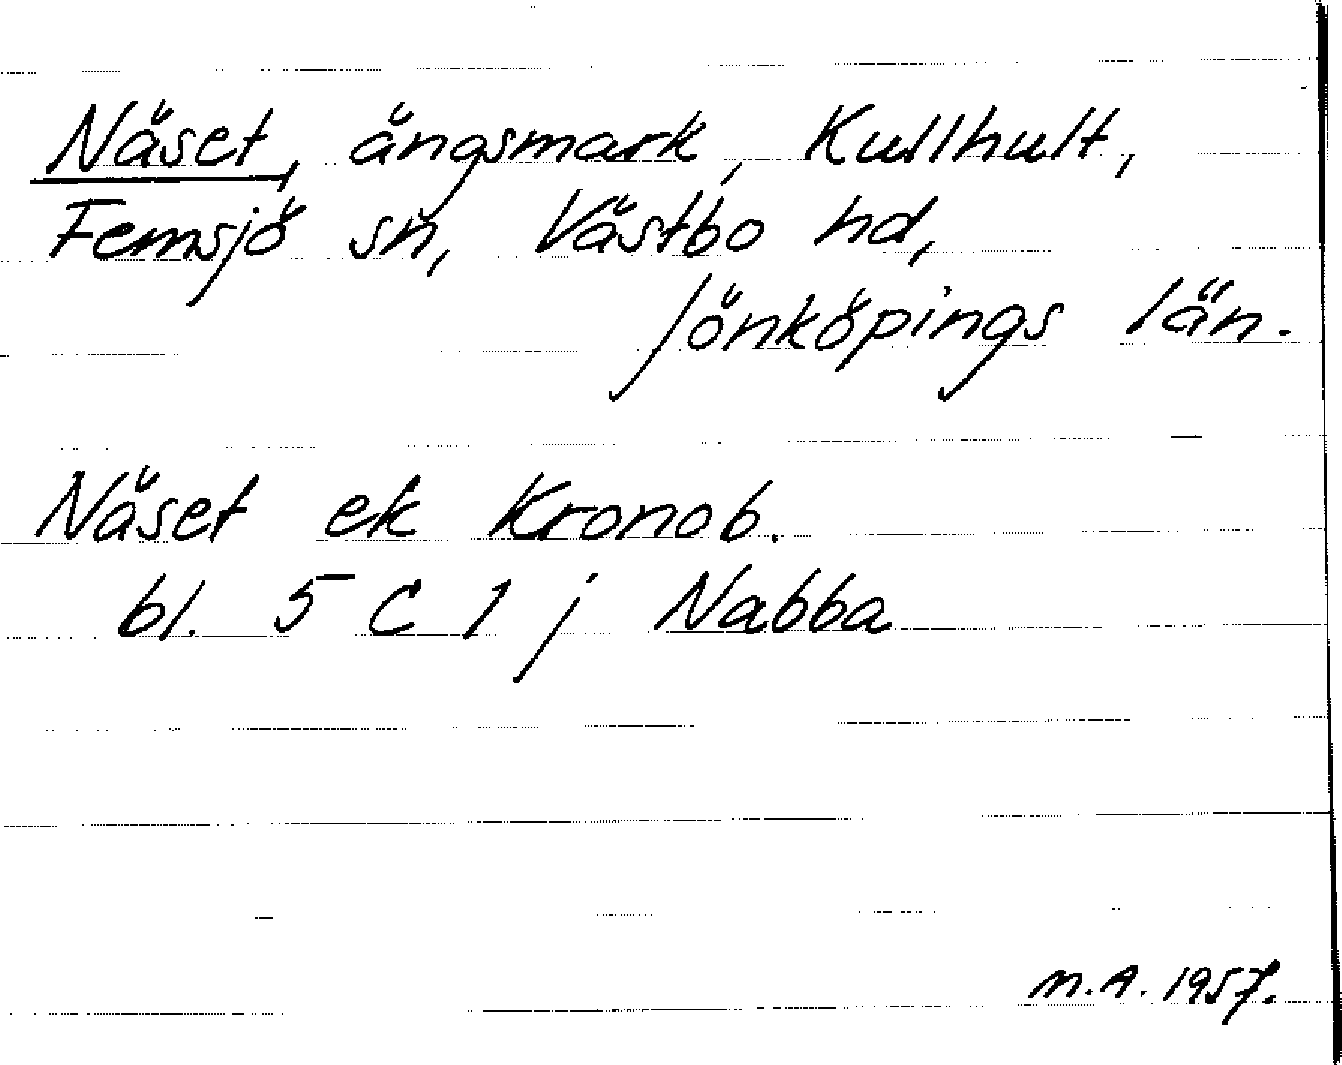 Näset, ängsmark, Kullhult,
Femsjö sn, Västbo hd,
Jönköpings län.
Näset ek Kronob.
bl. 5 C 1 j Nabba
M.A. 1957.